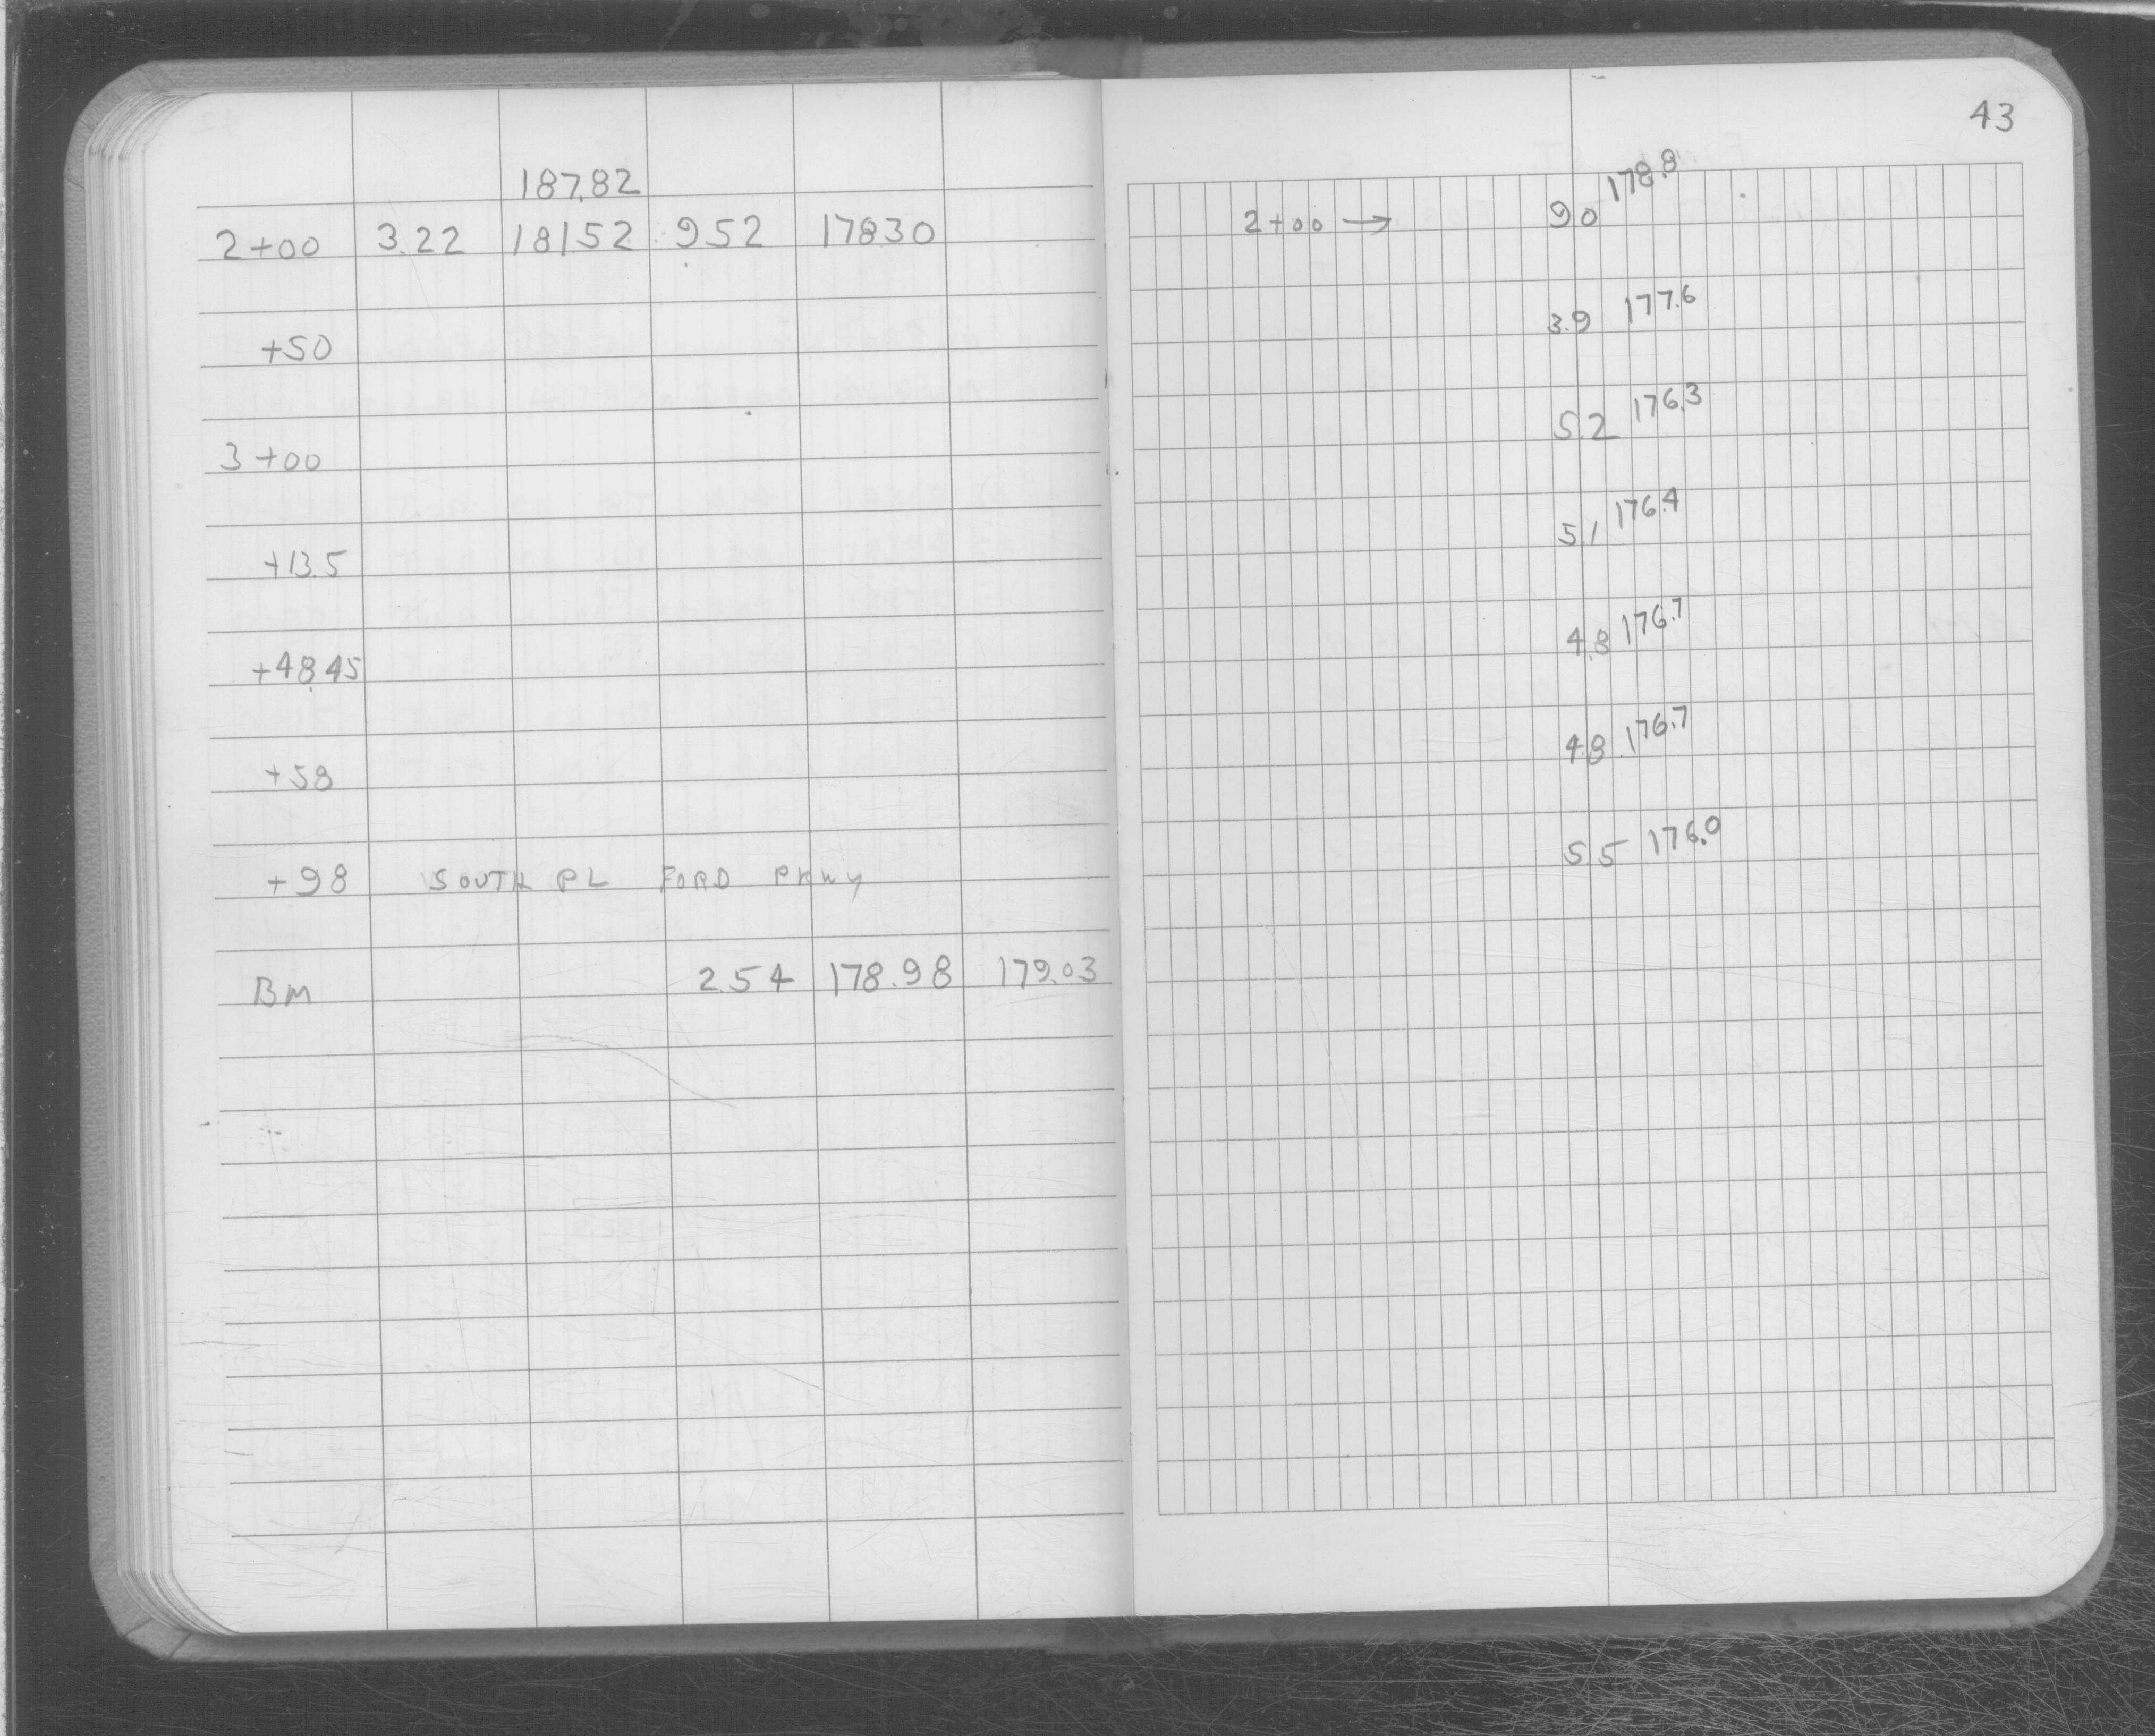 187.82
2+00 3.22 18152 952 17830
+50
3+00
+13.5
+48.45
+58
+98 SOUTH PL FORD PKWY
BM 2.54 178.98 179.03
43
2+00 → 90 178.8
3.9 177.6
5.2 176.3
5.1 176.4
4.8 176.7
4.8 176.7
5 5 176.0